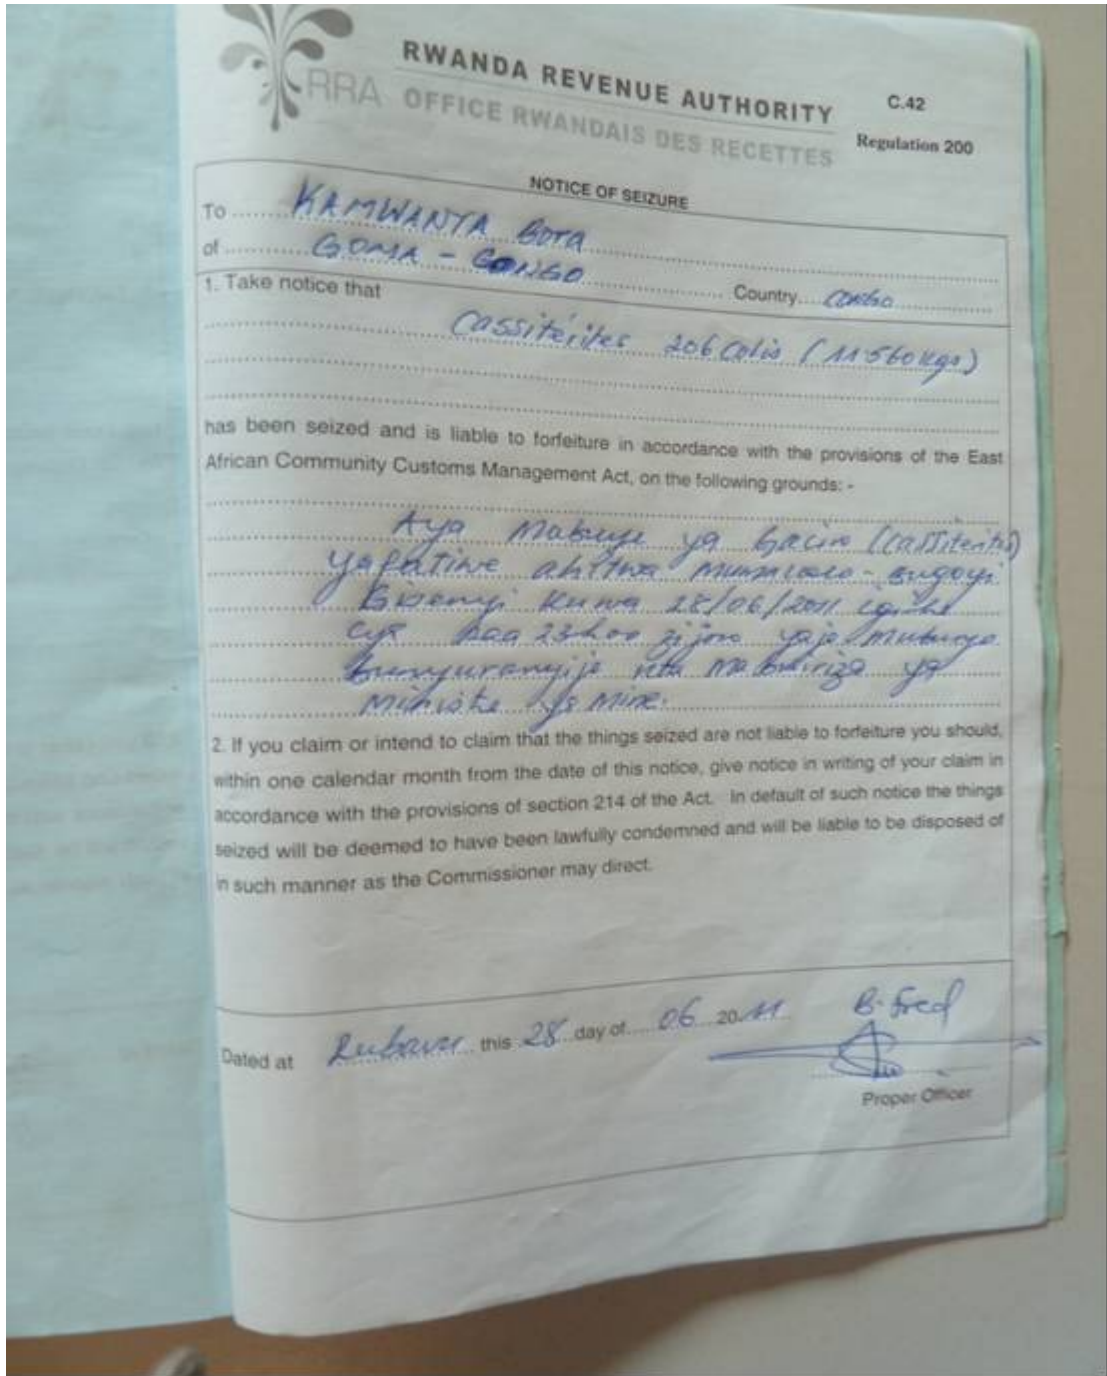 RRA
RWANDA REVENUE AUTHORITY
OFFICE RWANDAIS DES RECETTES
C.42
Regulation 200
NOTICE OF SEIZURE
To KAMWANTA Bora
of GOMA - CONGO Country Congo
1. Take notice that
Cassitérites 206 Colis (11560kgs)
has been seized and is liable to forfeiture in accordance with the provisions of the East
African Community Customs Management Act, on the following grounds: -
Aya mabuye ya (cassiterites)
yafatiwe ahitwa - Bugoyi
kuwa 28/06/2011 igihe
cya saa 23h00 z'ijoro yaje muburyo
bunyuranyije na mabwiriza ya
ya Mine.
2. If you claim or intend to claim that the things seized are not liable to forfeiture you should,
within one calendar month from the date of this notice, give notice in writing of your claim in
accordance with the provisions of section 214 of the Act. In default of such notice the things
seized will be deemed to have been lawfully condemned and will be liable to be disposed of
in such manner as the Commissioner may direct.
Dated at Rubavu this 28 day of 06 2011 B. Fred
Proper Officer